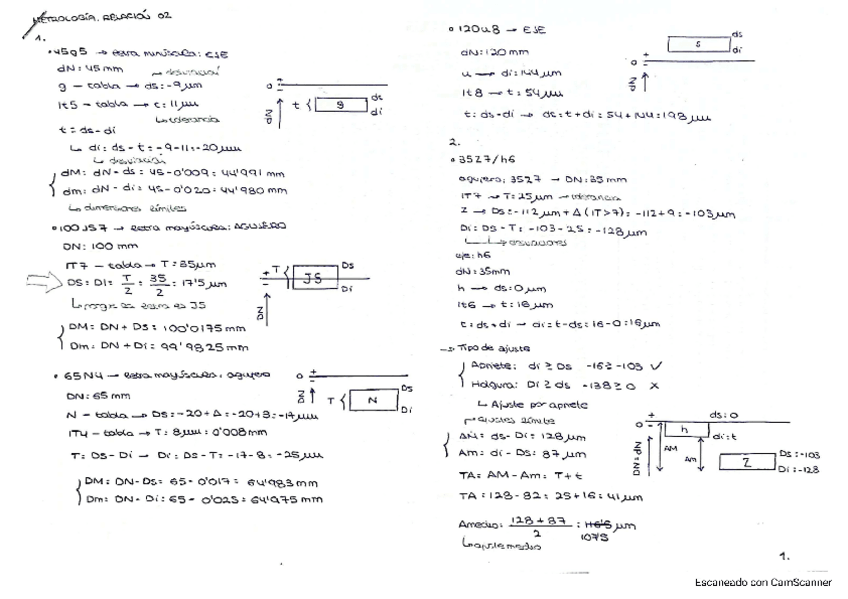 METROLOGÍA. RELACIÓN 02
1.
• 45g5 → letra minúscula: EJE
dN: 45 mm
→ desviación
g - tabla → ds: -9 µm
It5 - tabla → t: 11 µm
↳ tolerancia
t = ds - di
↳ di: ds - t = -9 - 11 = -20 µm
↳ desviación
dM: dN - ds: 45 - 0'009: 44'991 mm
dm: dN - di: 45 - 0'020: 44'980 mm
↳ dimensiones límites
0 + - ZN t { g ds di
• 100JS7 → letra mayúscula: AGUJERO
DN: 100 mm
IT7 - tabla → T: 35 µm
DS: DI: T/2 : 35/2 : 17'5 µm
↳ porque es letra es JS
DM: DN + DS: 100'0175 mm
Dm: DN + Di: 99'9825 mm
+ - T { JS Ds Di
• 65N4 → letra mayúscula, agujero
DN: 65 mm
N - tabla → DS: -20 + Δ: -20 + 3: -17 µm
IT4 - tabla → T: 8 µm: 0'008 mm
T: DS - Di → Di: DS - T: -17 - 8: -25 µm
DM: DN - Ds: 65 - 0'017: 64'983 mm
Dm: DN - Di: 65 - 0'025: 64'975 mm
0 + - T { N Ds Di
• 120u8 → EJE
dN: 120 mm
u → di: 144 µm
It8 → t: 54 µm
t: ds - di → ds: t + di: 54 + 144: 198 µm
0 + - s ds di
2.
• 35Z7/h6
agujero: 35Z7 → DN: 35 mm
IT7 → T: 25 µm → tolerancia
Z → Ds: -112 µm + Δ (IT>7): -112 + 9: -103 µm
Di: DS - T: -103 - 25: -128 µm
↳ desviaciones
eje: h6
dN: 35 mm
h → ds: 0 µm
It6 → t: 16 µm
t: ds + di → di: t - ds: 16 - 0: 16 µm
→ Tipo de ajuste
Apriete: di ≥ Ds -16 ≥ -103 ✓
Holgura: Di ≥ ds -138 ≥ 0 X
↳ Ajuste por apriete
→ ajustes límite
AM: ds - Di: 128 µm
Am: di - DS: 87 µm
TA: AM - Am: T + t
TA: 128 - 82: 25 + 16: 41 µm
Amedio: 128 + 87 / 2 : µm
107'5
↳ ajuste medio
0 + - DN: dN h ds: 0 di: t AM Am Z Ds: -103 Di: -128
1.
Escaneado con CamScanner